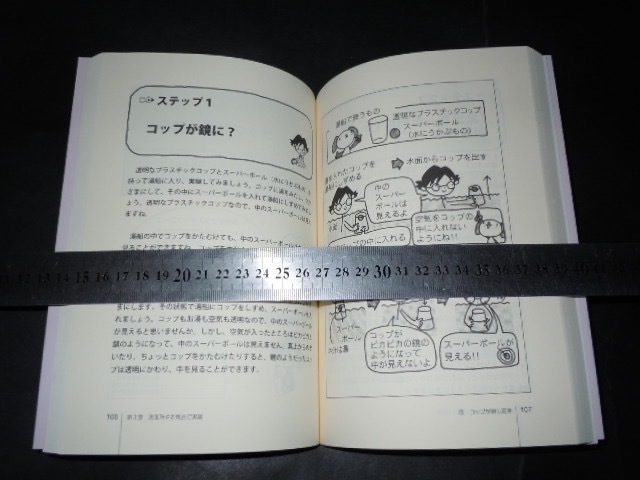 ステップ1
コップが鏡に？
透明なプラスチックコップとスーパーボール（水にうかぶもの）を
持って湯船に入り、実験してみましょう。コップに湯を
さまにして、その中にスーパーボールを入れて湯船にしずめてみ
ょう。透明なプラスチックコップなので、中のスーパーボールは
ますね。
湯船の中でコップをかたむけても、中のスーパーボール
見ることができますね。
まにします。その状態で湯船にコップをしずめ、スーパーボールを
れましょう。コップもお湯も空気も透明なので、中のスーパーボール
が見えると思いませんか。しかし、空気が入ったところはピカピカの
鏡のようになって、中のスーパーボールは見えません。真上からのぞ
いたり、ちょっとコップをかたむけたりすると、鏡のようだったコッ
プは透明にかわり、中を見ることができます。
106
湯船で使うもの
透明なプラスチックコップ
スーパーボール
（水にうかぶもの）
入れたコップを
しずめる
水面からコップを出す
中の
スーパー
ボールは
見えるよ
空気をコップの
中に入れない
ようにね！
の中に入れる
11 12 13 14 15 16 17 18 19 20 21 22 23 24 25 26 27 28 29 30 31 32 33 34 35 36 37 38 39 40
スーパー
ボール
コップが
ピカピカの鏡の
ようになって
中が見えないよ
スーパーボールが
見える!!
107